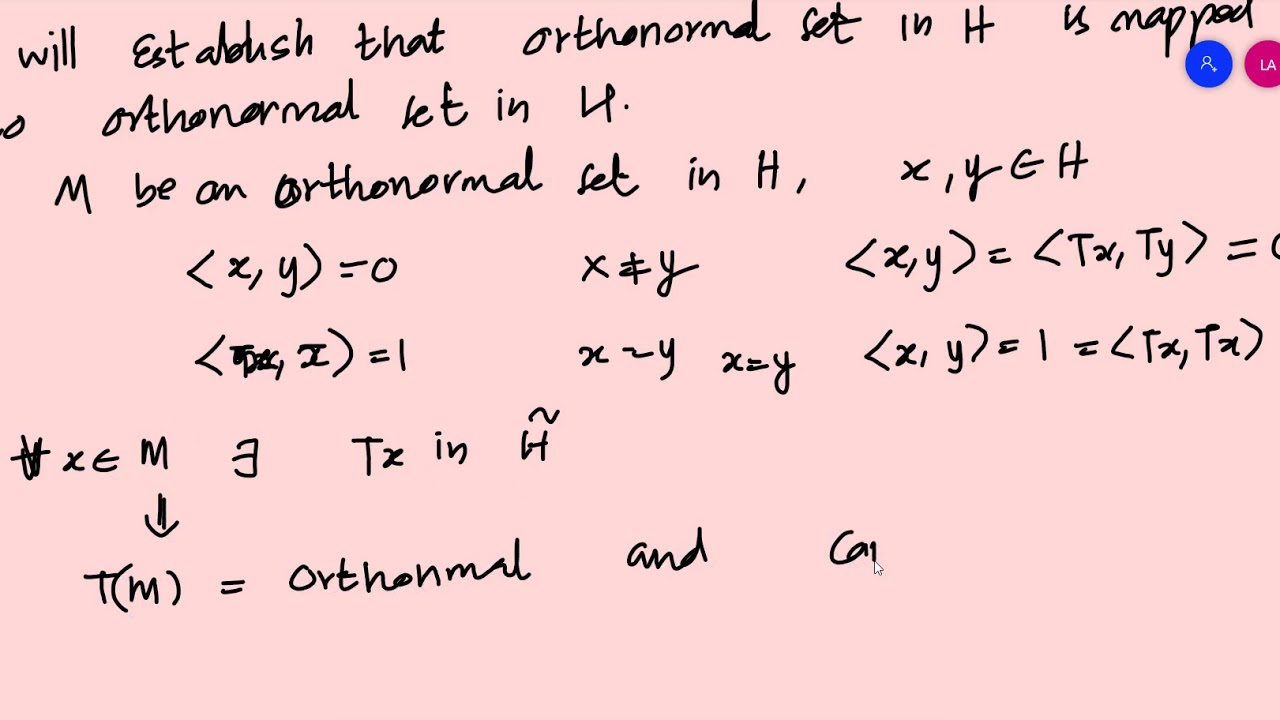 will Establish that orthonormal set in H is mapped
orthonormal set in H.
M be an orthonormal set in H, x, y ∈ H
<x, y> = 0 x ≠ y <x, y> = <Tx, Ty> = 0
x = y x = y <x, y> = 1 = <Tx, Tx>
∀ x ∈ M ∃ Tx in H̃
⇓
T(M) = Orthonmal and
LA